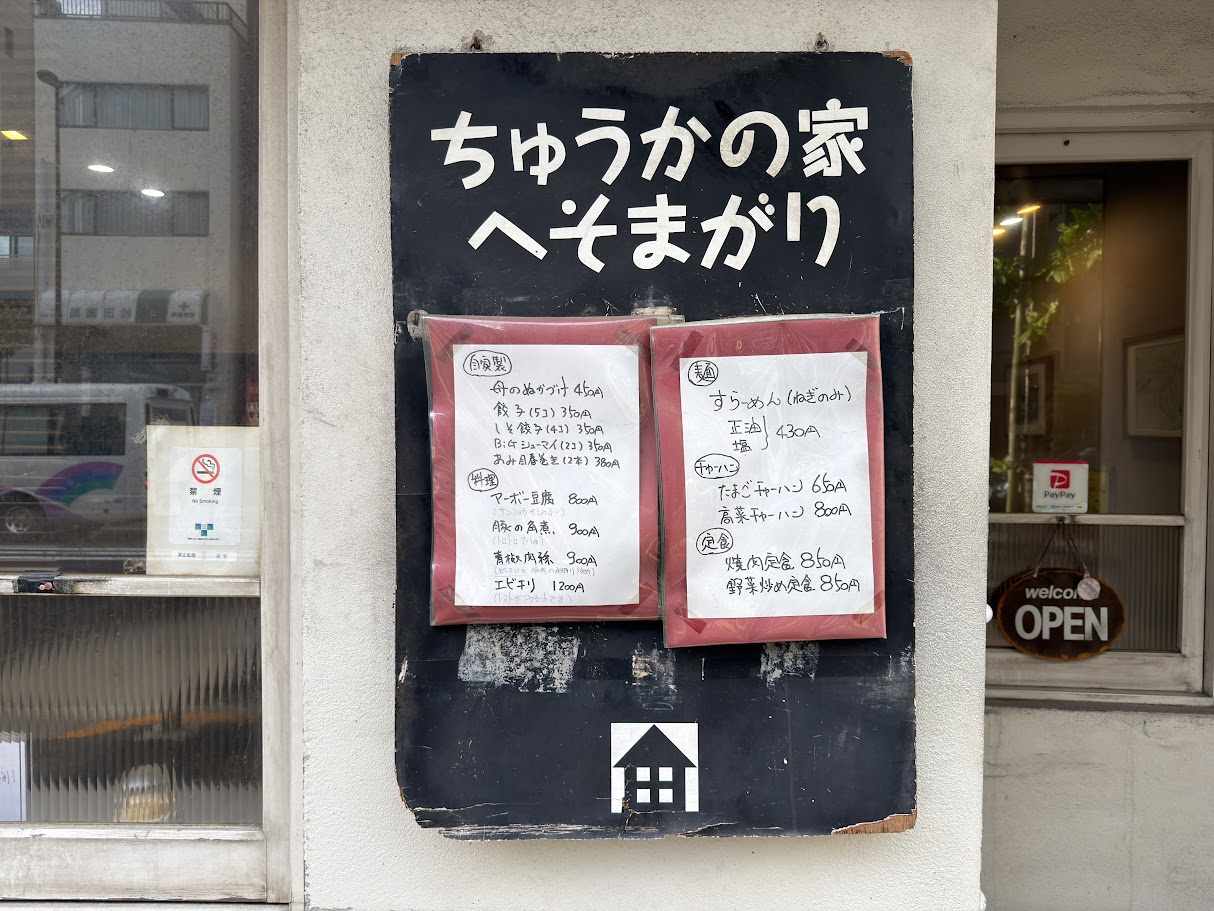 ちゅうかの家
へそまがり
自家製
母のぬかづけ 450円
餃子(5コ) 350円
しそ餃子(4コ) 350円
BiGシューマイ(2コ) 350円
あみ目春巻き(2本) 380円
料理
マーボー豆腐 800円
豚の角煮 900円
青椒肉絲 900円
エビチリ 1200円
麺
すらーめん(ねぎのみ)
正油
塩 430円
チャーハン
たまごチャーハン 650円
高菜チャーハン 800円
定食
焼肉定食 850円
野菜炒め定食 850円
禁煙
No Smoking
PayPay
welcome
OPEN